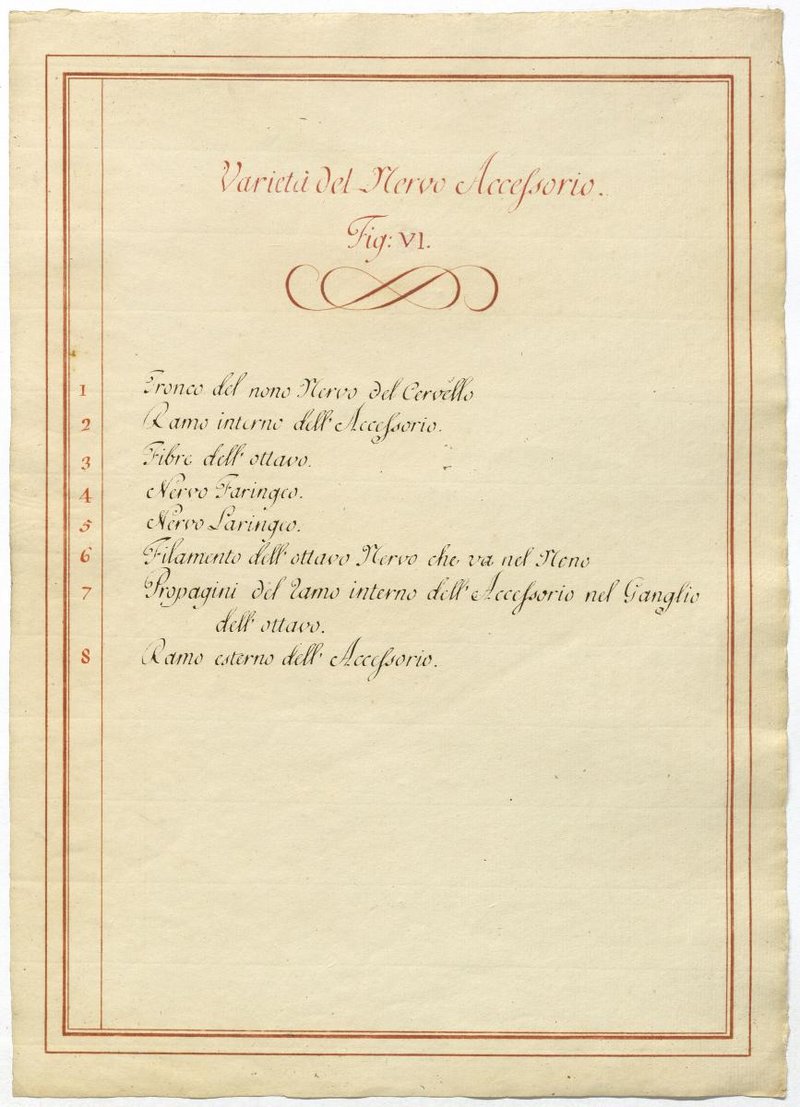 Varietà del Nervo Accessorio.
Fig: VI.
1 Tronco del nono Nervo del Cervello
2 Ramo interno dell' Accessorio.
3 Fibre dell' ottavo.
4 Nervo Faringeo.
5 Nervo Laringeo.
6 Filamento dell' ottavo Nervo che va nel Nono
7 Propagini del Ramo interno dell' Accessorio nel Ganglio
dell' ottavo.
8 Ramo esterno dell' Accessorio.